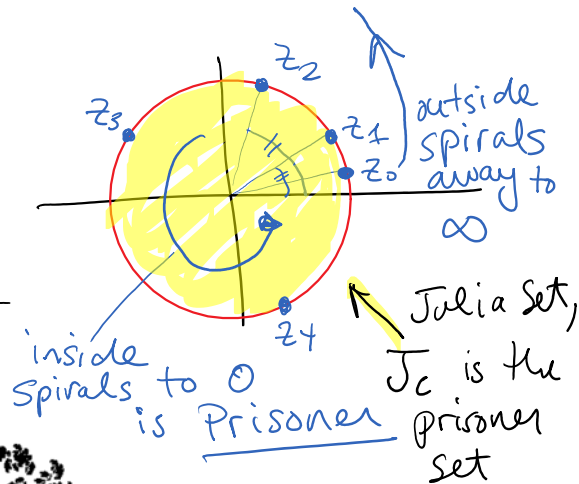 z2
z3
z1
z0
outside
spirals
away to
∞
z4
inside
spirals to 0
is Prisoner
Julia Set,
Jc is the
prisoner
set